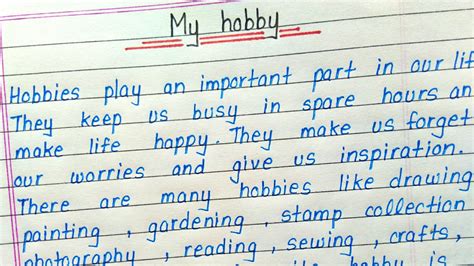 My hobby
Hobbies play an important part in our lif
They keep us busy in spare hours an
make life happy. They make us forget
our worries and give us inspiration.
There are many hobbies like drawing
painting , gardening , stamp collection
photography , reading , sewing , crafts ,
hobby is